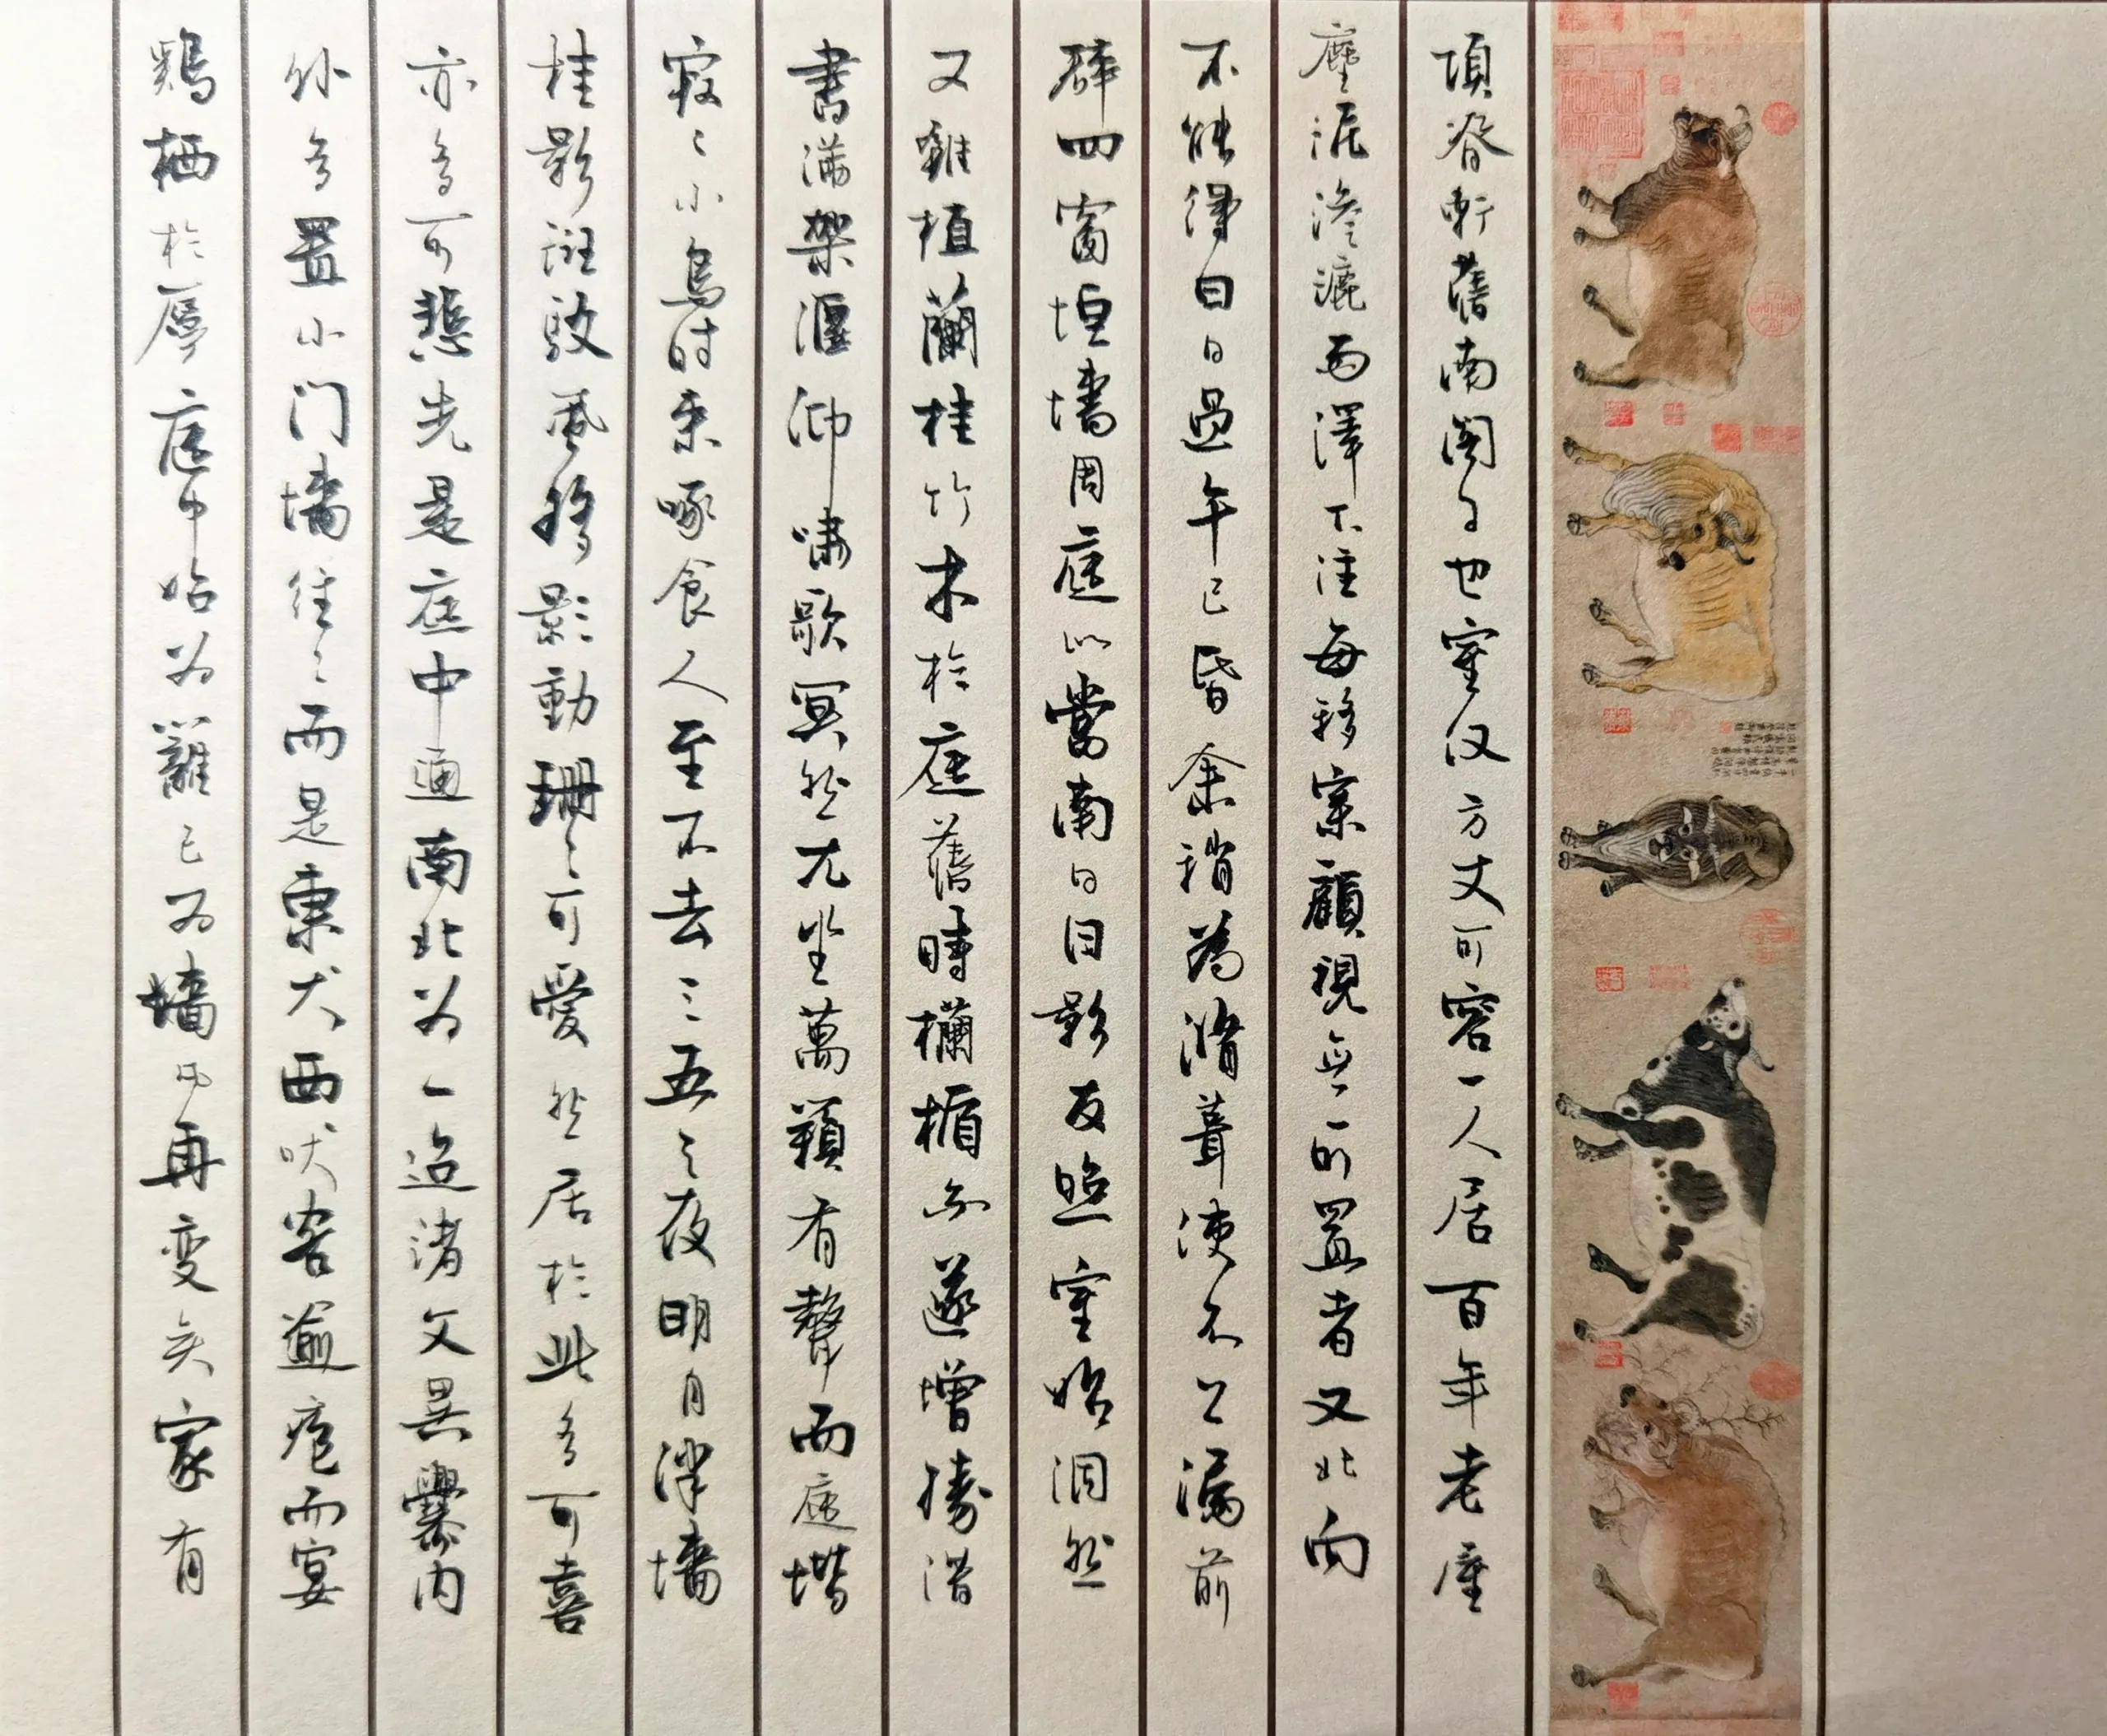 項脊軒舊南閣子也室仅方丈可容一人居百年老屋
塵泥滲漉雨澤下注每移案顧視無可置者又北向
不能得日日過午已昏余稍為修葺使不上漏前
辟四窗垣墻周庭以當南日日影反照室始洞然
又雜植蘭桂竹木於庭舊時欄楯亦遂增勝借
書滿架偃仰嘯歌冥然兀坐萬籟有聲而庭堦
寂〻小鳥时來啄食人至不去三五之夜明月半墻
桂影斑駁風移影動珊〻可愛然居於此多可喜
亦多可悲先是庭中通南北为一迨諸父異爨内
外多置小门墻往〻而是東犬西吠客逾庖而宴
鷄栖於廳庭中始为籬已为墻凡再变矣家有